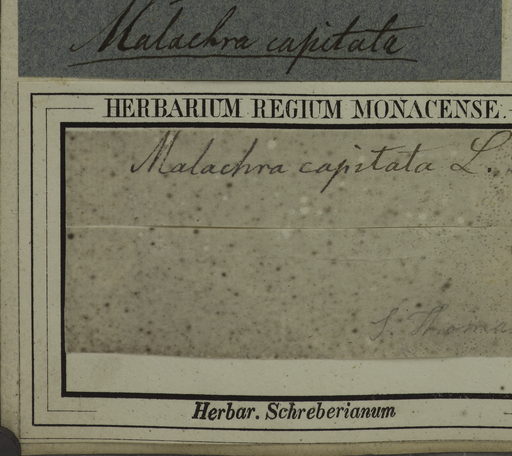 Malachra capitata
HERBARIUM REGIUM MONACENSE.
Malachra capitata L.
S. Thoma
Herbar. Schreberianum